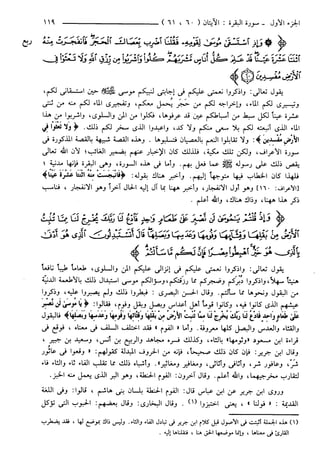 الجزء الأول - سورة البقرة : الآيتان ( ٦٠ ، ٦١ )
١١٩
ربع
﴿ ۞ وَإِذِ اسْتَسْقَىٰ مُوسَىٰ لِقَوْمِهِ فَقُلْنَا اضْرِب بِّعَصَاكَ الْحَجَرَ فَانفَجَرَتْ مِنْهُ
اثْنَتَا عَشْرَةَ عَيْنًا قَدْ عَلِمَ كُلُّ أُنَاسٍ مَّشْرَبَهُمْ كُلُوا وَاشْرَبُوا مِن رِّزْقِ اللَّهِ وَلَا تَعْثَوْا فِي
الْأَرْضِ مُفْسِدِينَ ﴾
يقول تعالى: واذكروا نعمتي عليكم في إجابتي لنبيكم موسى حين استسقاني لكم،
وتيسيري لكم الماء، وإخراجه لكم من حَجَر يُحمل معكم، وتفجيري الماء لكم منه من ثنتي
عشرة عيناً لكل سبط من أسباطكم عين قد عرفوها، فكلوا من المن والسلوى، واشربوا من هذا
الماء الذي أنبعته لكم بلا سعي منكم ولا كد، واعبدوا الذي سخر لكم ذلك. ﴿ وَلَا تَعْثَوْا فِي
الْأَرْضِ مُفْسِدِينَ ﴾: ولا تقابلوا النعم بالعصيان فتسلبوها. وهذه القصة شبيهة بالقصة المذكورة في
سورة الأعراف، ولكن تلك مكية، فلذلك كان الإخبار عنهم بضمير الغائب؛ لأن الله تعالى
يقص ذلك على رسوله عما فعل بهم. وأما في هذه السورة، وهي البقرة فإنها مدنية ؛
فلهذا كان الخطاب فيها متوجهاً إليهم. وأخبر هناك بقوله: ﴿ فَانبَجَسَتْ مِنْهُ اثْنَتَا عَشْرَةَ عَيْنًا ﴾
[الأعراف: ١٦٠] وهو أول الانفجار، وأخبر ههنا بما آل إليه الحال آخراً وهو الانفجار ، فناسب
ذكر هذا ههنا، وذاك هناك، والله أعلم .
﴿ وَإِذْ قُلْتُمْ يَا مُوسَىٰ لَن نَّصْبِرَ عَلَىٰ طَعَامٍ وَاحِدٍ فَادْعُ لَنَا رَبَّكَ يُخْرِجْ لَنَا مِمَّا
تُنبِتُ الْأَرْضُ مِن بَقْلِهَا وَقِثَّائِهَا وَفُومِهَا وَعَدَسِهَا وَبَصَلِهَا قَالَ أَتَسْتَبْدِلُونَ الَّذِي هُوَ أَدْنَىٰ
بِالَّذِي هُوَ خَيْرٌ اهْبِطُوا مِصْرًا فَإِنَّ لَكُم مَّا سَأَلْتُمْ ﴾
يقول تعالى: واذكروا نعمتي عليكم في إنزالي عليكم المن والسلوى، طعاماً طيباً نافعاً
هنيئاً سهلاً، واذكروا دَبَركم وضجركم مما رزقتكم، وسؤالكم موسى استبدال ذلك بالأطعمة الدنيّة
من البقول ونحوها مما سألتم. وقال الحسن البصري : فبطروا ذلك ولم يصبروا عليه، وذكروا
عيشهم الذي كانوا فيه، وكانوا قوماً أهل أعداس وبصل وبقل وفوم، فقالوا: ﴿ يَا مُوسَىٰ لَن نَّصْبِرَ
عَلَىٰ طَعَامٍ وَاحِدٍ فَادْعُ لَنَا رَبَّكَ يُخْرِجْ لَنَا مِمَّا تُنبِتُ الْأَرْضُ مِن بَقْلِهَا وَقِثَّائِهَا وَفُومِهَا وَعَدَسِهَا وَبَصَلِهَا ﴾ فالبقول
والقثاء والعدس والبصل كلها معروفة. وأما « الفوم » فقد اختلف السلف في معناه ، فوقع في
قراءة ابن مسعود «وثومها» بالثاء، وكذلك فسره مجاهد والربيع بن أنس، وسعيد بن جبير ،
وقال ابن جرير: فإن كان ذلك صحيحاً، فإنه من الحروف المبدلة كقولهم: « وقعوا في عاثُور
شَرّ، وعافور شر، وأثافي وأثاثي، ومغافير ومغاثير». وأشباه ذلك مما تقلب الفاء ثاء والثاء فاء
لتقارب مخرجيهما، والله أعلم. وقال آخرون: الفوم الحنطة، وهو البر الذي يعمل منه الخبز.
وروى ابن جرير عن ابن عباس قال: الفوم الحنطة بلسان بني هاشم ، قالوا: وفي اللغة
القديمة : « فوموا لنا » ، يعني اختبزوا (١) . وقال البخاري: وقال بعضهم: الحبوب التي تؤكل
(١) هذه الجملة أثبتت في الأصول قبل كلام ابن جرير في تبادل الفاء والثاء. وليس ذاك بموضع لها ، فقد يضطرب
القارئ في معناها ، وإنما موضعها الحق هنا ، فنقلناها إليه .